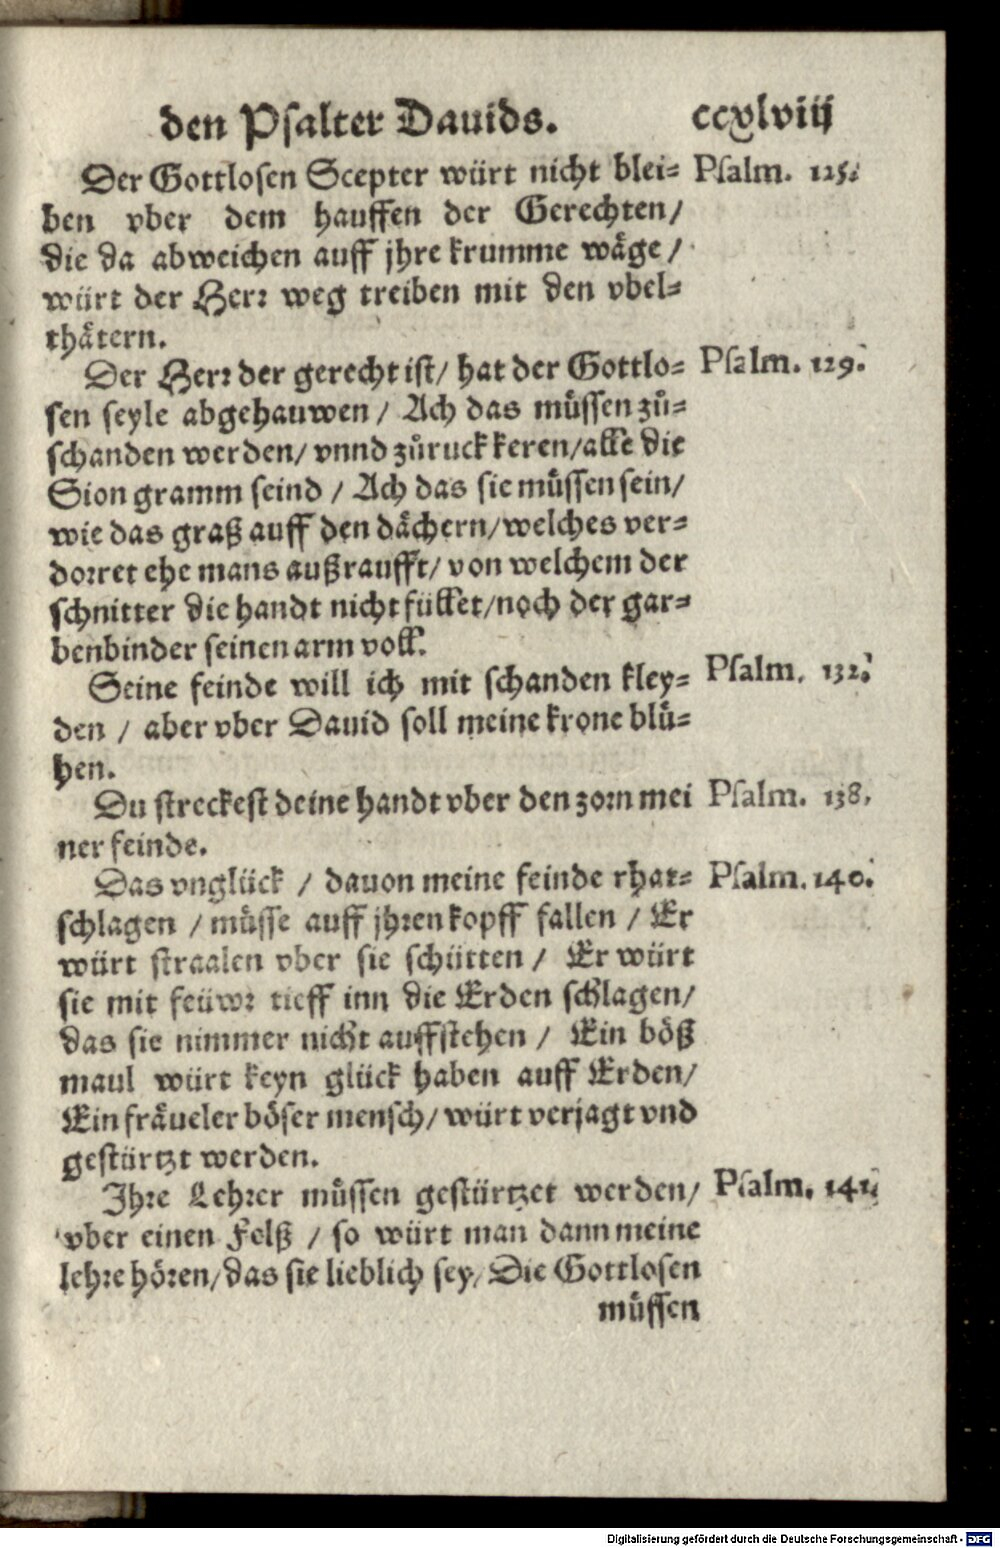 den Psalter Dauids. ccxlviij
Der Gottlosen Scepter würt nicht blei= Psalm. 125.
ben vber dem hauffen der Gerechten/
die da abweichen auff jhre krumme wäge/
würt der Herr weg treiben mit den vbel=
thätern.
Der Herr der gerecht ist/ hat der Gottlo= Psalm. 129.
sen seyle abgehauwen / Ach das müssen zů=
schanden werden/ vnnd zůruck keren/alle die
Sion gramm seind / Ach das sie müssen sein/
wie das graß auff den dächern/welches ver=
dorret ehe mans außraufft/ von welchem der
schnitter die handt nicht füllet/noch der gar=
benbinder seinen arm voll.
Seine feinde will ich mit schanden kley= Psalm. 132.
den / aber vber Dauid soll meine krone blü=
hen.
Du streckest deine handt vber den zorn mei Psalm. 138.
ner feinde.
Das vnglück / dauon meine feinde rhat= Psalm. 140.
schlagen / müsse auff jhren kopff fallen / Er
würt straalen vber sie schütten / Er würt
sie mit feüwr tieff inn die Erden schlagen/
das sie nimmer nicht auffstehen / Ein böß
maul würt keyn glück haben auff Erden/
Ein fräueler böser mensch/ würt verjagt vnd
gestürtzt werden.
Jhre Lehrer müssen gestürtzet werden/ Psalm. 141.
vber einen Felß / so würt man dann meine
lehre hören/das sie lieblich sey/ Die Gottlosen
müssen
Digitalisierung gefördert durch die Deutsche Forschungsgemeinschaft - DFG